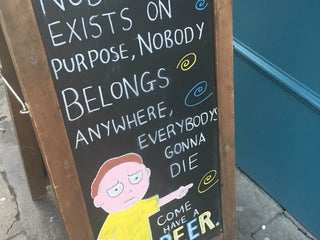 EXISTS ON
PURPOSE, NOBODY
BELONGS
ANYWHERE,
EVERYBODYS
GONNA
DIE
COME
HAVE A
BEER.